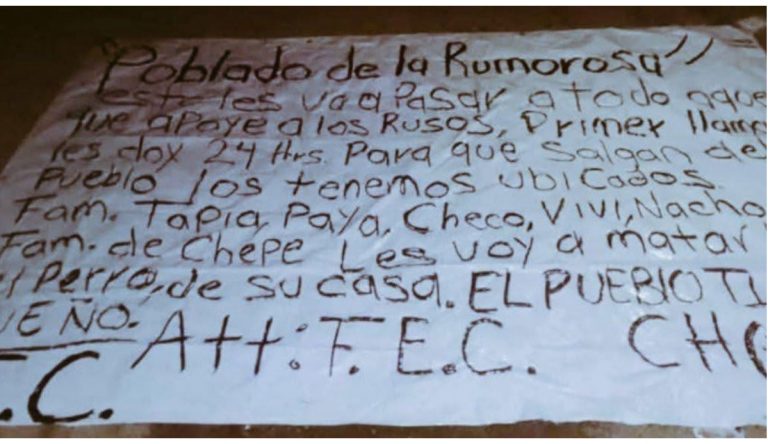 "Poblado de la Rumorosa"
esto les va a Pasar a todo aque
que apoye a los Rusos, Primer llama
les doy 24 Hrs. Para que Salgan del
Pueblo los tenemos ubicados.
Fam. Tapia, Paya, Checo, Vivi, Nacho
Fam. de Chepe Les voy a matar
Perro, de su casa. EL PUEBLO TI
UEÑO. Att: F. E.C. CH
.C.